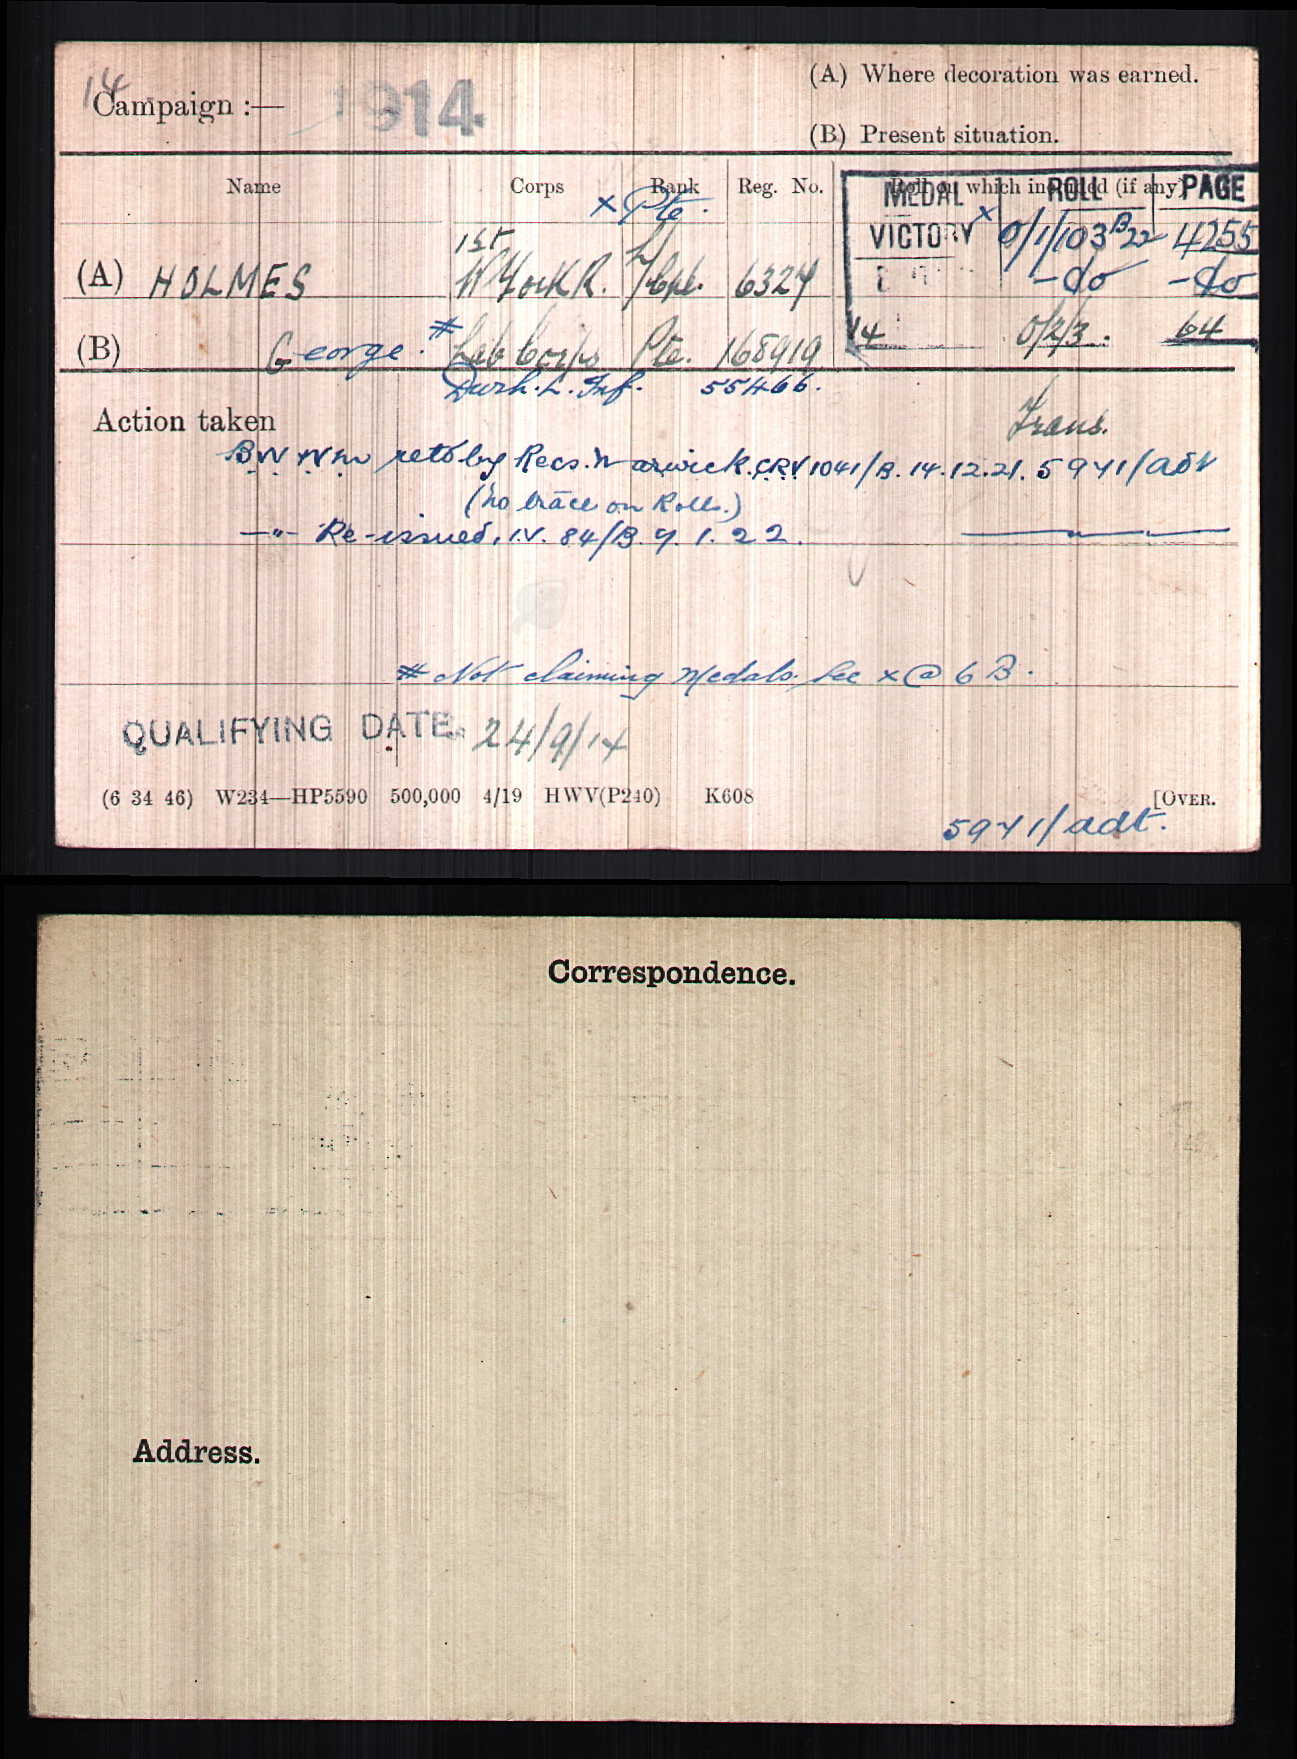 14
Campaign :— 1914
(A) Where decoration was earned.
(B) Present situation.
Name Corps Rank Reg. No. Roll on which included (if any)
MEDAL ROLL PAGE
x Pte.
VICTORY x O/1/103 B22 4255
1st
(A) HOLMES W York R. L/Cpl. 6327 -do- -do-
(B) George. # Lab Corps Pte. 168919 14 O/2/3. 64
Durh. L. Inf. 55466.
Action taken Trans.
BW & VM retd by Recs. Warwick. CRV 1041/B. 14.12.21. 5971/adt
(no trace on Rolls.)
—"— Re-issued. I.V. 84/B. 9. 1. 22.
# Not claiming Medals. See x @ 6 B.
QUALIFYING DATE. 24/9/14
(6 34 46) W234—HP5590 500,000 4/19 HWV(P240) K608 [OVER.
5971/adt.
Correspondence.
Address.